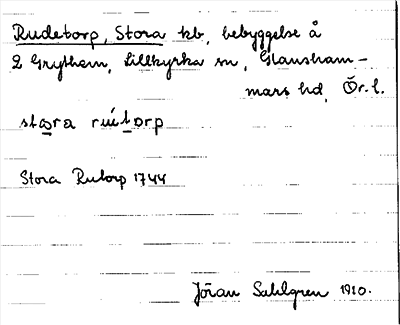 Rudetorp, Stora kb, bebyggelse å
2 Grythem, Lillkyrka sn, Glansham-
mars hd, Ör. l.
stora rútorp
Stora Rutorp 1744
Jöran Sahlgren 1910.